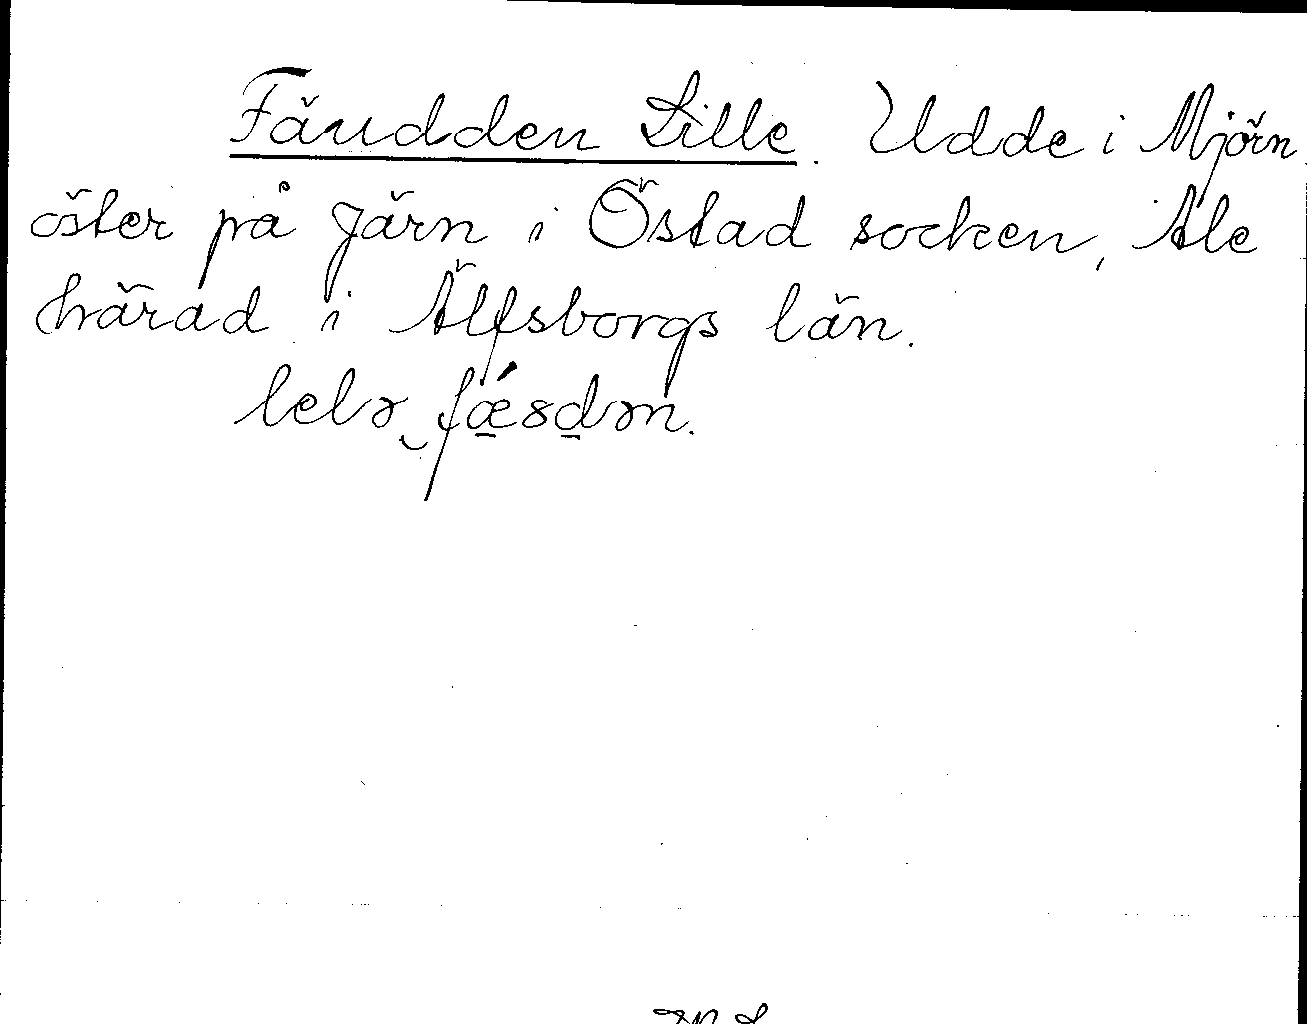 Fäudden Lille. Udde i Mjörn
öster på Järn i Östad socken, Ale
härad i Älfsborgs län.